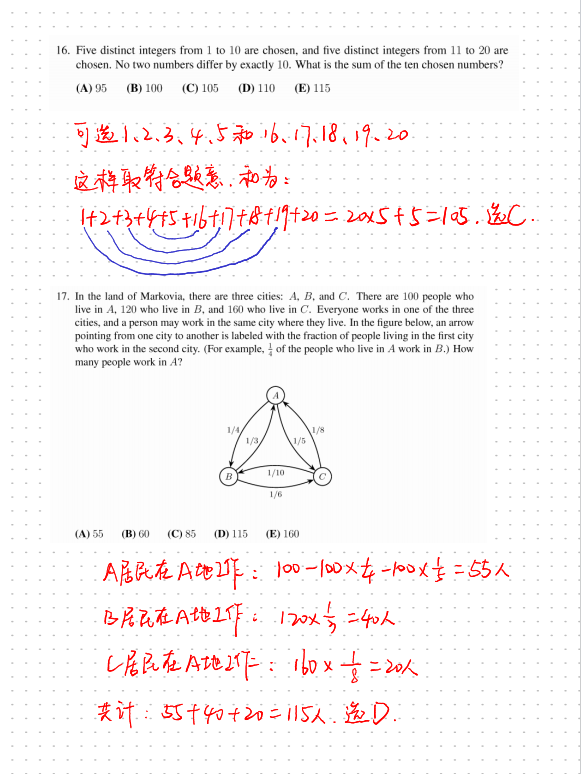 16. Five distinct integers from 1 to 10 are chosen, and five distinct integers from 11 to 20 are
chosen. No two numbers differ by exactly 10. What is the sum of the ten chosen numbers?
(A) 95 (B) 100 (C) 105 (D) 110 (E) 115
可选1、2、3、4、5和16、17、18、19、20
这样取符合题意，和为：
1+2+3+4+5+16+17+18+19+20=20×5+5=105.选C.
17. In the land of Markovia, there are three cities: A, B, and C. There are 100 people who
live in A, 120 who live in B, and 160 who live in C. Everyone works in one of the three
cities, and a person may work in the same city where they live. In the figure below, an arrow
pointing from one city to another is labeled with the fraction of people living in the first city
who work in the second city. (For example, 1/4 of the people who live in A work in B.) How
many people work in A?
A
1/4 1/8
1/3 1/5
B 1/10 C
1/6
(A) 55 (B) 60 (C) 85 (D) 115 (E) 160
A居民在A地工作：100-100×1/4-100×1/5=55人
B居民在A地工作：120×1/3=40人
C居民在A地工作：160×1/8=20人
共计：55+40+20=115人.选D.